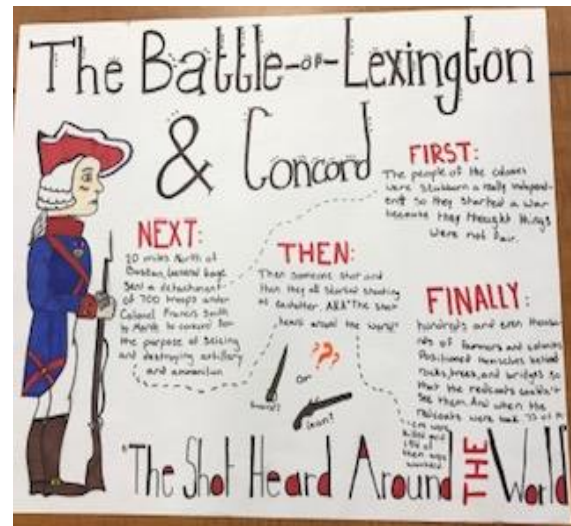 The Battle-of-Lexington
& Concord
FIRST:
The people of the colonies
were stubborn & really independ-
ent so they started a war
because they thought things
were not fair.
NEXT:
20 miles North of
Boston, General Gage
Sent a detachment
of 700 troops under
Colonel Francis Smith
to March to concord for
the purpose of seizing
and destroying artillery
and ammunition
THEN:
Then someone shot and
then they all started shooting
at eachother. A.K.A "The shot
heard around the world"
???
or
FINALLY:
hundreds and even thousa-
nds of farmers and colonists
Positioned themselves behind
rocks, trees, and bridges so
that the redcoats couldn't
see them. And when the
redcoats were 73 of
them were
killed and
174 of
them was
wounded.
"The Shot Heard Around THE World